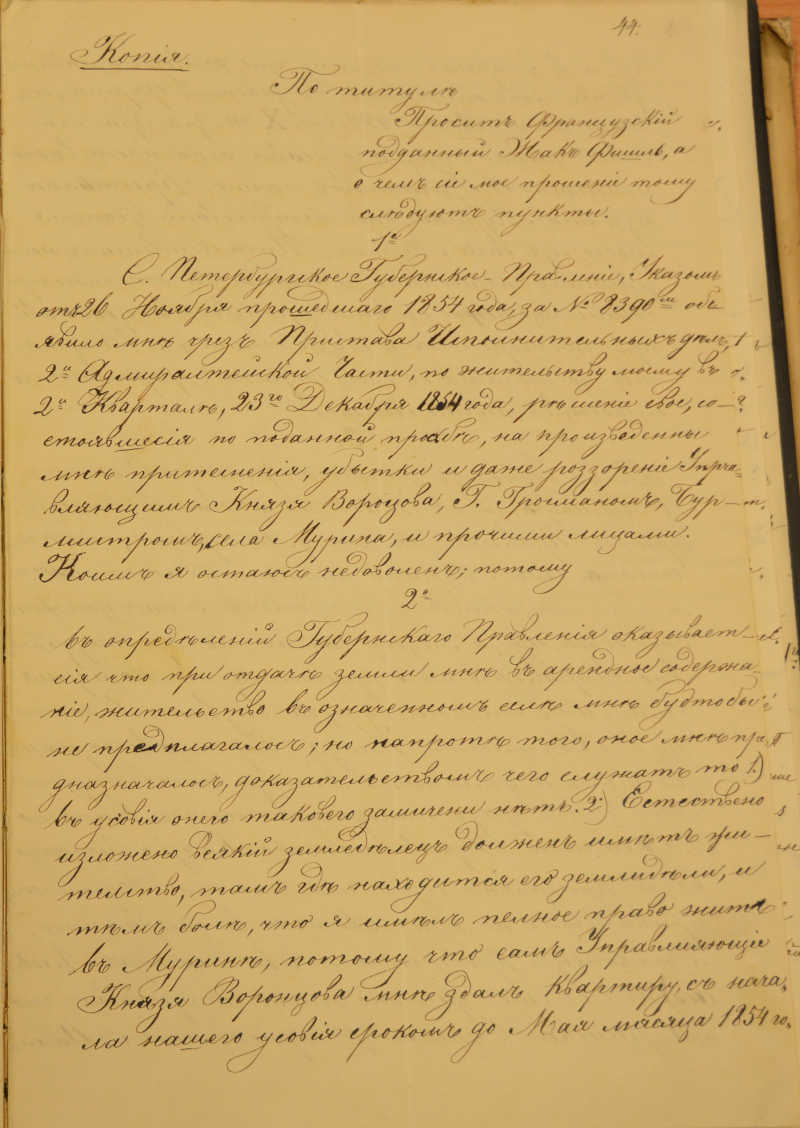 44.
Копія.
По титулѣ
Проситъ Французскій
подданный Жакъ Фишль, а
о чемъ сіе мое прошеніе тому
слѣдуютъ пункты.
1е
С. Петербургское Губернское Правленіе, Указомъ
отъ 26 Ноября прошедшаго 1854 года, за № 8390 объ
явило мнѣ чрезъ Пристава Исполнительныхъ дѣлъ,
2й Адмиралтейской Части, по жительству моему въ
2й Кварталѣ, 23го Декабря 1854 года, рѣшеніе свое, со-
стоявшесія по поданной прозбѣ, на произведенны
мнѣ притесненія, убытки и даже роззореніе Упра-
вляющимъ Князя Воронцова, Г. Гросманомъ, Бур-
мистромъ, села Мурина, и прочими лицами.
Коимъ я остаюсъ недоволенъ; потому
2е
въ опредѣленій Губернскаго Правленія оказывает-
сія что при отдачѣ земли мнѣ въ арендное содержа-
ніе, жительство въ означенномъ селѣ мнѣ будтобы
не предплагалосъ; но напротѣ того, оное мнѣ пре-
дназначалосъ, доказательствомъ чего служатъ то 1)
въ усовія онего таковего замичени нѣтъ. 2) Естествено
изложено всякій земледѣлецъ долженъ имѣтъ жи-
телство, тамъ гдѣ находится его землидѣли, и
тѣмъ болѣ, что я имѣлъ пелное право житъ
въ Муринѣ, потому что самъ Управляющіе
Князя Воронцова мнѣ здалъ квартиру, съ нача-
ла нашего усовія срокомъ до Мая мясяца 1854 го-